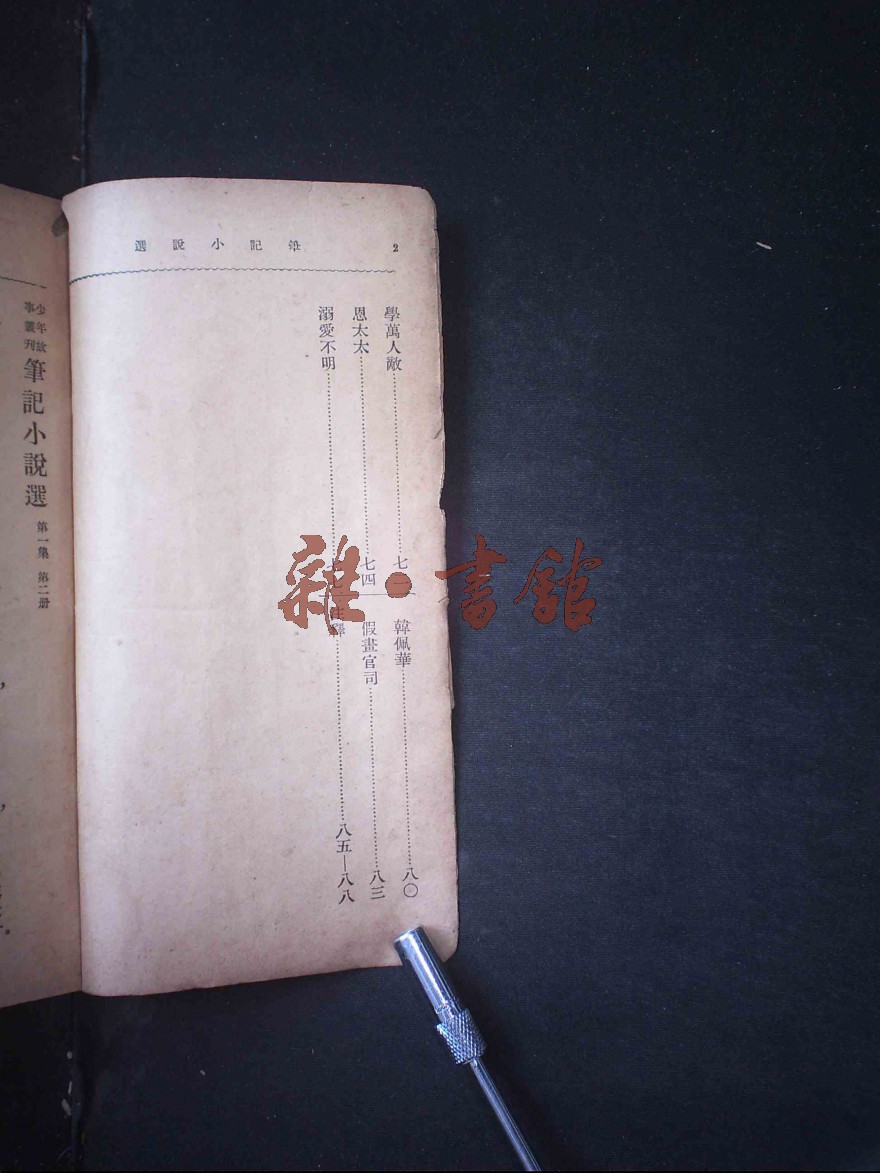 2 筆記小說選
學萬人敵……七一
恩太太……七四
溺愛不明……七七
韓佩華……八〇
假畫官司……八三
註釋……八五—八八
少年故事叢刊 筆記小說選 第一集 第二册
雜·書館